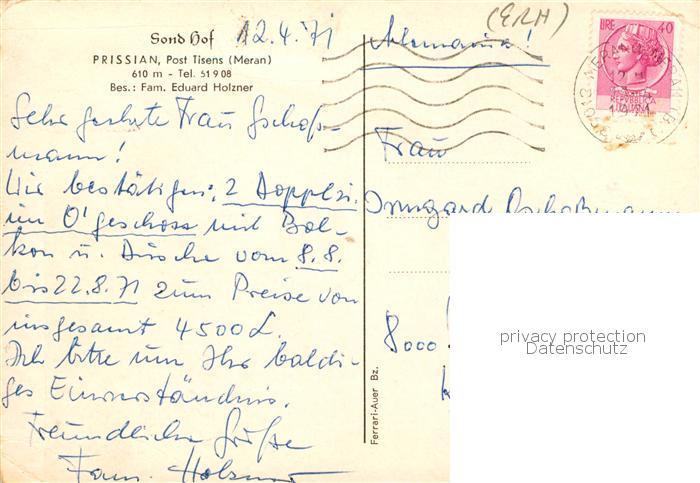 Sond Hof 12.4.71
PRISSIAN, Post Tisens (Meran)
610 m - Tel. 51 9 08
Bes.: Fam. Eduard Holzner
Sehr geehrte Frau
mann!
Wir bestätigen: 2 Dopplzi.
im O'geschoss mit Bal-
kon u. Dusche vom 8.8.
bis 22.8.71 zum Preise von
insgesamt 4500 L.
Ich bitte um Ihr baldi-
ges Einverständnis.
Freundliche Grüße
Fam. Holzner
(ERH)
Alemania!
LIRE 40
REPVBBLICA
ITALIANA
MERANO
Frau
Irmgard
8000
Ferrari-Auer Bz.
privacy protection
Datenschutz